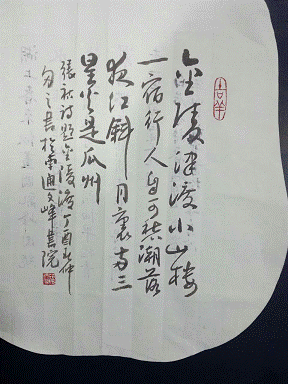 吉羊
金陵津渡小山楼
一宿行人自可愁潮落
夜江斜月裏两三
星火是瓜州
張祜诗题金陵渡丁酉秋仲
之书於南通文峰书院